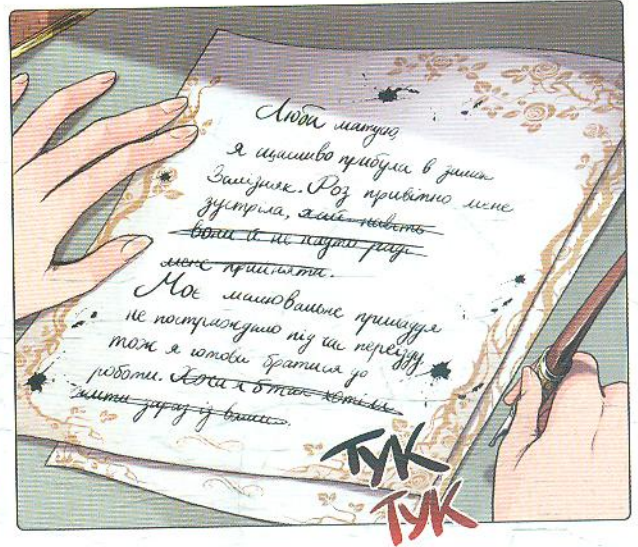 Люба матусю,
я щасливо прибула в замок
Залізняк. Роз привітно мене
зустріла, хай навіть
вони й не надто раді
мене прийняти.
Моє малювальне приладдя
не постраждало під час переїзду,
тож я готова братися до
роботи. Хоча я б так хотіла
жити зараз із вами.
ТУК
ТУК